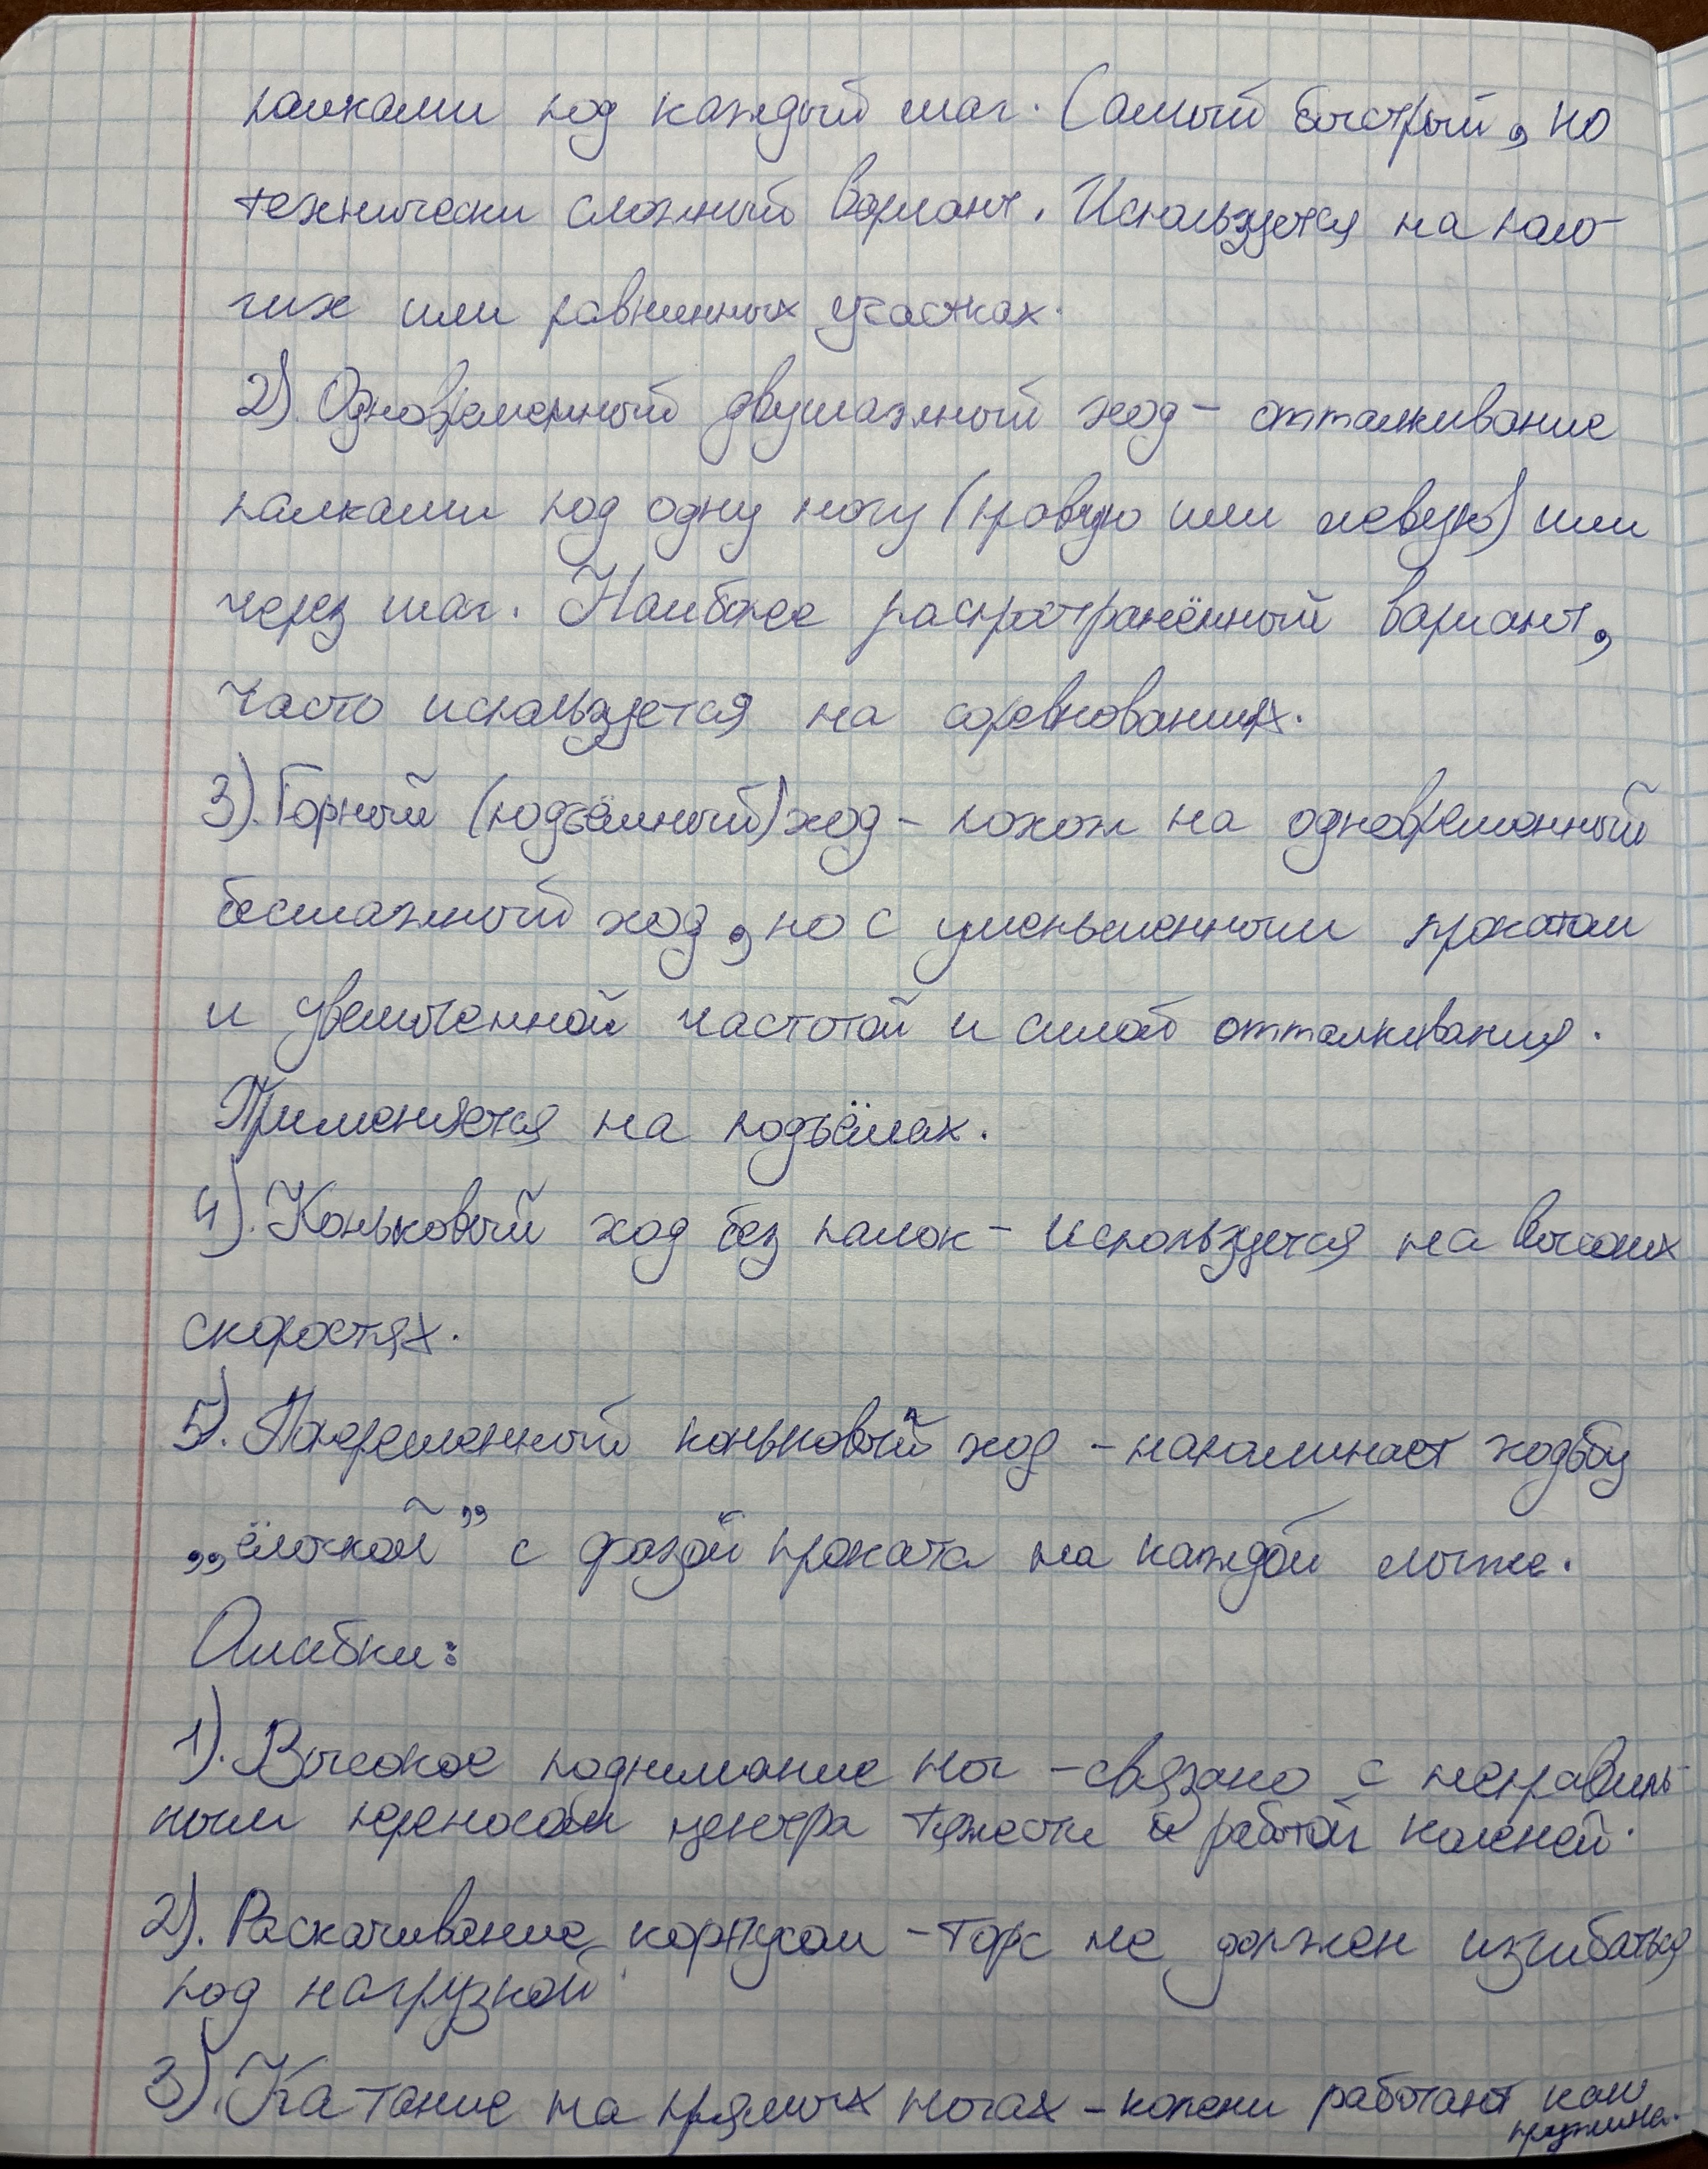 палками под каждый шаг. Самый быстрый, но
технически сложный вариант. Используется на поло-
гих или равнинных участках.
2). Одновременный двушажный ход - отталкивание
палками под одну ногу (правую или левую) или
через шаг. Наиболее распространённый вариант,
часто используется на соревнованиях.
3). Горный (подъёмный) ход - похож на одновременный
бесшажный ход, но с уменьшенным прокатом
и увеличенной частотой и силой отталкивания.
Применяется на подъёмах.
4). Коньковый ход без палок - используется на высоких
скоростях.
5). Попеременный коньковый ход - напоминает ходьбу
„ёлочкой” с фазой проката на каждой лыже.
Ошибки:
1). Высокое поднимание ног - связано с неправиль-
ным переносом центра тяжести и работой коленей.
2). Раскачивание корпусом - торс не должен изгибаться
под нагрузкой.
3). Катание на прямых ногах - колени работают как
пружина.